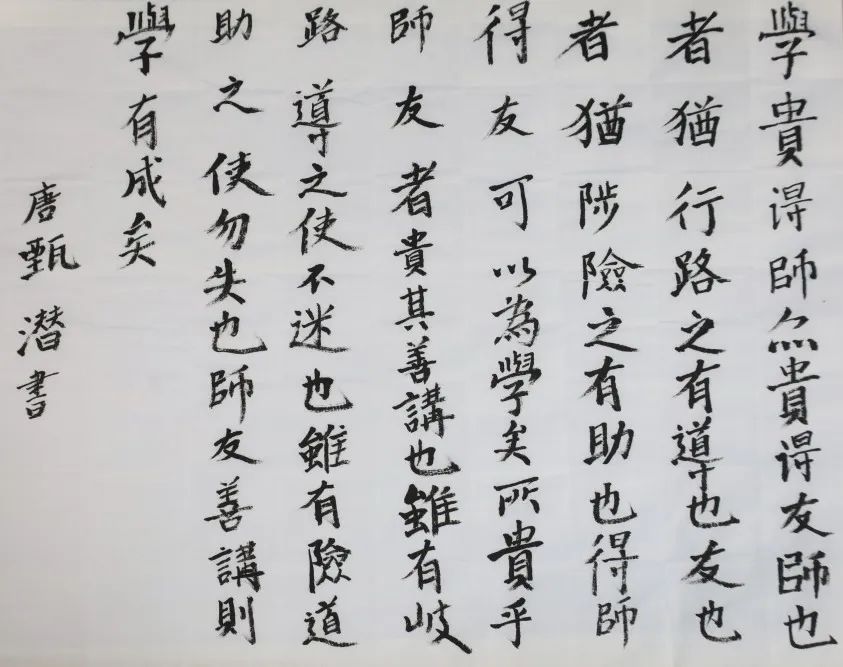 學貴得師亦貴得友師也
者猶行路之有導也友也
者猶陟險之有助也得師
得友可以為學矣所貴乎
師友者貴其善講也雖有岐
路導之使不迷也雖有險道
助之使勿失也師友善講則
學有成矣
唐甄潛書